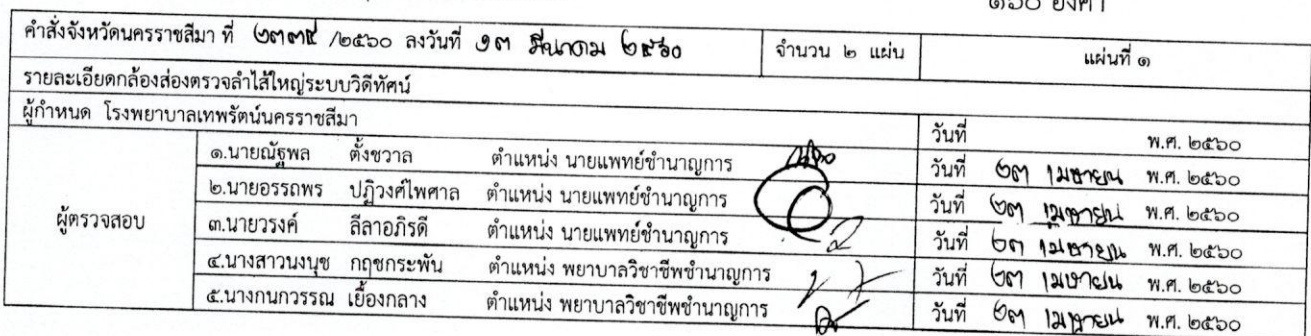 ๑๖๐ องศา
คำสั่งจังหวัดนครราชสีมา ที่ ๒๓๓๕ /๒๕๖๐ ลงวันที่ ๑๓ มีนาคม ๒๕๖๐ จำนวน ๒ แผ่น แผ่นที่ ๑
รายละเอียดกล้องส่องตรวจลำไส้ใหญ่ระบบวิดีทัศน์
ผู้กำหนด โรงพยาบาลเทพรัตน์นครราชสีมา วันที่ พ.ศ. ๒๕๖๐
๑.นายณัฐพล ตั้งชวาล ตำแหน่ง นายแพทย์ชำนาญการ วันที่ ๒๓ เมษายน พ.ศ. ๒๕๖๐
๒.นายอรรถพร ปฏิวงศ์ไพศาล ตำแหน่ง นายแพทย์ชำนาญการ วันที่ ๒๓ เมษายน พ.ศ. ๒๕๖๐
ผู้ตรวจสอบ ๓.นายวรงค์ ลีลาอภิรดี ตำแหน่ง นายแพทย์ชำนาญการ วันที่ ๒๓ เมษายน พ.ศ. ๒๕๖๐
๔.นางสาวนงนุช กฤชกระพัน ตำแหน่ง พยาบาลวิชาชีพชำนาญการ วันที่ ๒๓ เมษายน พ.ศ. ๒๕๖๐
๕.นางกนกวรรณ เยื้องกลาง ตำแหน่ง พยาบาลวิชาชีพชำนาญการ วันที่ ๒๓ เมษายน พ.ศ. ๒๕๖๐